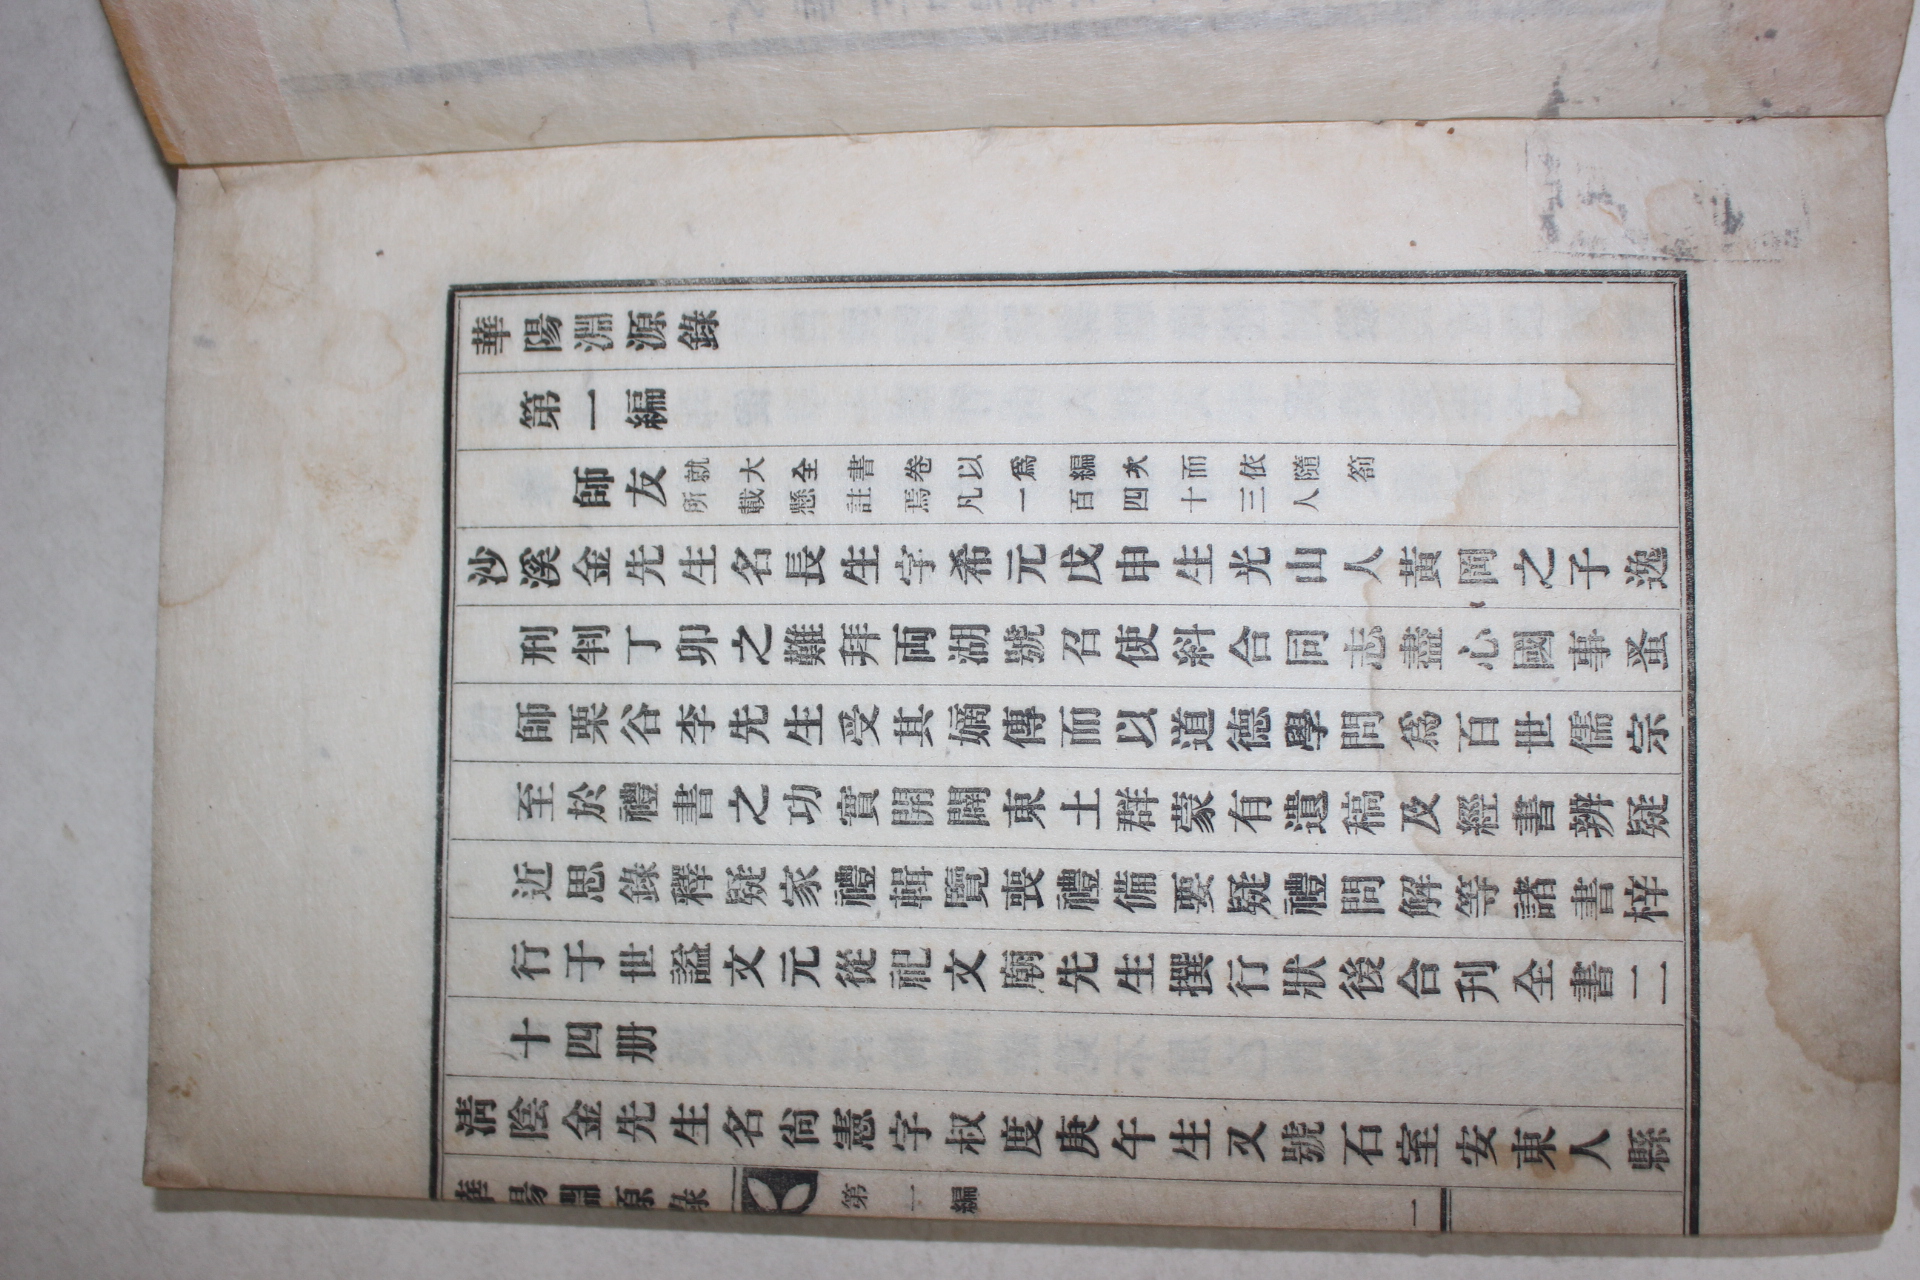 華陽淵源錄
第一編
師友
就大全書卷以爲編次而依隨箚
所載懸註焉凡一百四十三人
沙溪金先生名長生字希元戊申生光山人黃岡之子逸
刑判丁卯之難拜両湖號召使糾合同志盡心國事蚤
師栗谷李先生受其嫡傳而以道德學問爲百世儒宗
至於禮書之功實開闢東土群蒙有遺稿及經書辨疑
近思錄釋疑家禮輯覽喪禮備要疑禮問解等諸書梓
行于世謚文元從祀文廟先生撰行狀後合刊全書二
十四册
淸陰金先生名尙憲字叔度庚午生又號石室安東人縣
華陽淵源錄
第一編
二